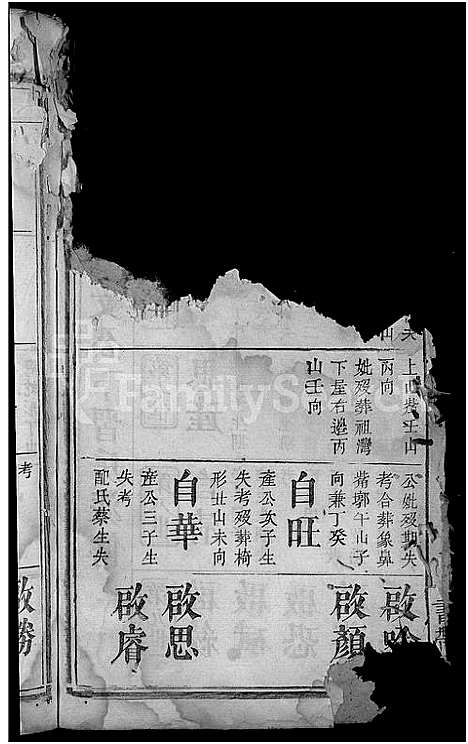 丙向
妣歿葬祖灣
下屋右邊丙
山壬向
公妣歿期失
考合葬象鼻
嘴廓午山子
向兼丁癸
自旺
產公次子生
失考歿葬椅
形丑山未向
自華
產公三子生
失考
配氏蔡生失
啟顏
啟思
啟睿
考
啟勝
FamilySearch